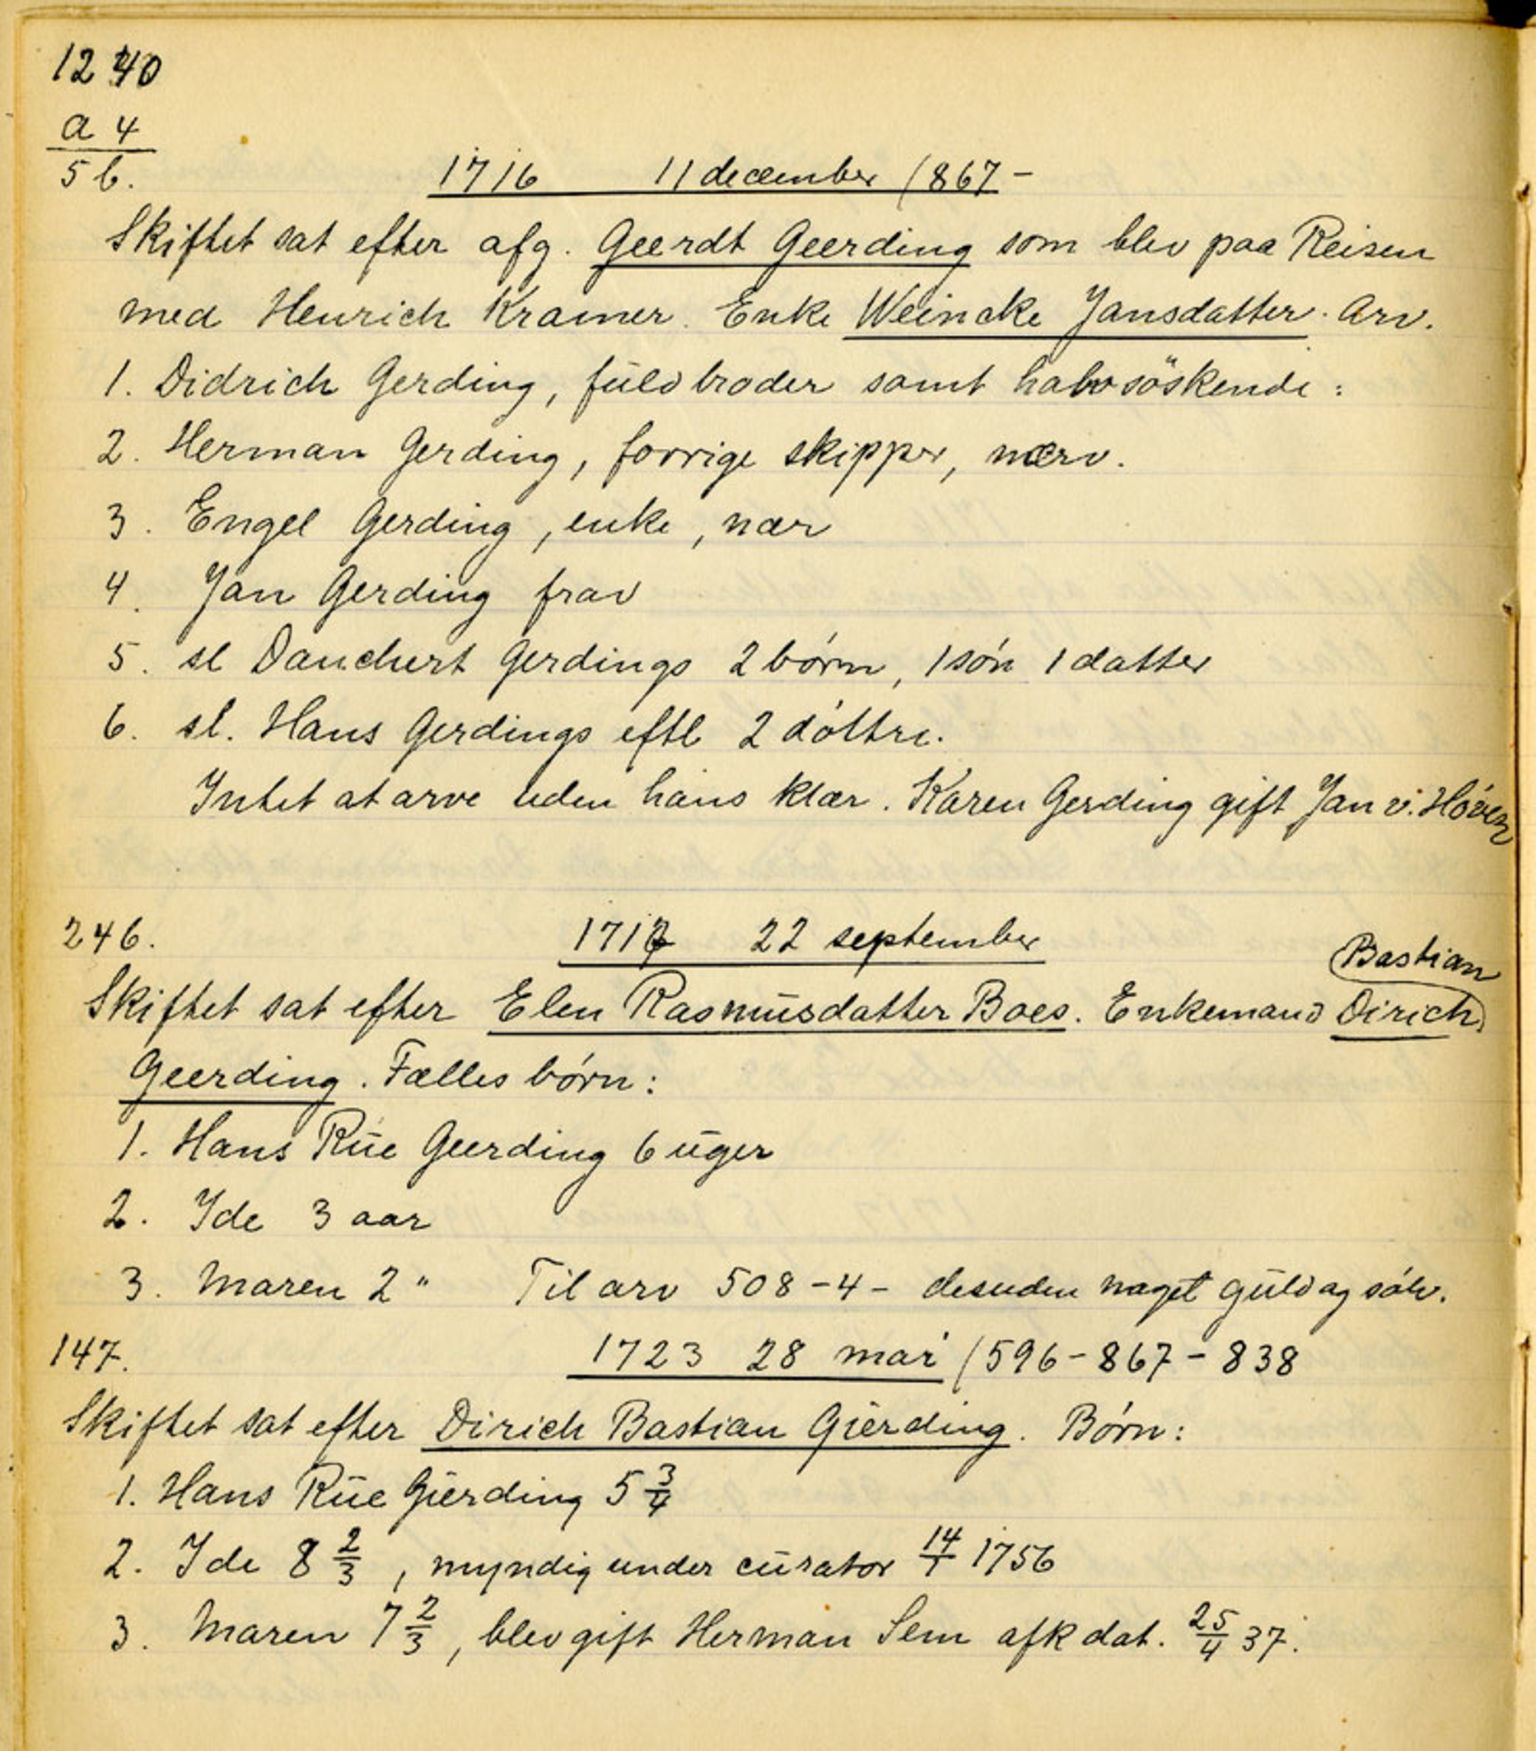 1240
a 4
5 b.
1716 11 december (867 -
Skiftet sat efter afg. Geerdt Geerding som blev paa Reisen
med Henrich Kramer. Enke Weincke Jansdatter. Arv.
1. Didrich Gerding, fŭldbroder samt halvsöskende:
2. Herman Gerding, forrige skipper, nærv.
3. Engel Gerding, enke, nær
4. Jan Gerding frav
5. sl Danchert Gerdings 2 børn, 1 søn 1 datter
6. sl. Hans Gerdings eftl 2 døttre.
Intet at arve uden hans klær. Karen Gerding gift Jan v. Høven
246. 22 september
Bastian
Skiftet sat efter Elen Rasmŭsdatter Boes. Enkemand Dirich
Geerding. Fælles børn:
1. Hans Rŭe Geerding 6 ŭger
2. Ide 3 aar
3. Maren 2 " Til arv 508 - 4 - desuden noget gŭld og sølv.
147. 1723 28 mai (596 - 867 - 838
Skiftet sat efter Dirich Bastian Gierding. Børn:
1. Hans Rŭe Gierding 5 3/4
2. Ide 8 2/3, myndig under cŭrator 14/1 1756
3. Maren 7 2/3, blev gift Herman Sem afk dat. 25/4 37.